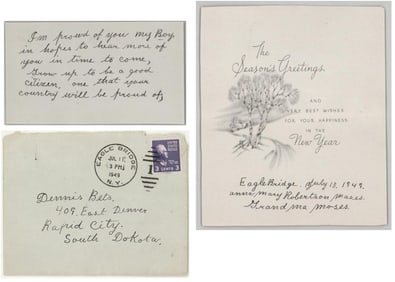 I'm proud of you my Boy
in hopes to hear more of
you in time to come,
Grow up to be a good
citizen, one that your
country will be proud of,
EAGLE BRIDGE
JUL 12
3 PM
1949
N.Y.
1
3 CENTS 3
Dennis Bets.
409. East Denver
Rapid City.
South Dakota.
The
Season's Greetings
AND
VERY BEST WISHES
FOR YOUR HAPPINESS
IN THE
New Year
Eagle Bridge, July 12, 1949.
anna mary Robertson moses.
Grandma moses.